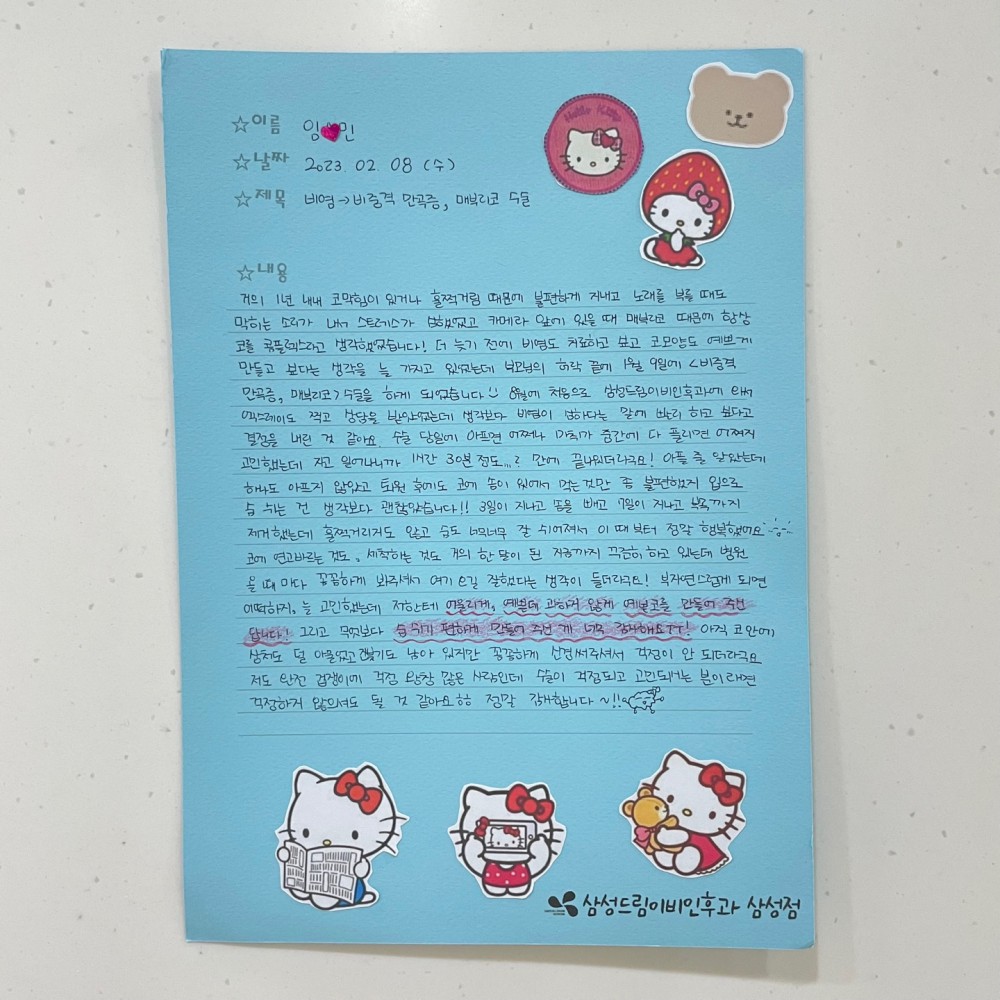 Hello Kitty
☆이름 임♥민
☆날짜 2023. 02. 08 (수)
☆제목 비염→비중격 만곡증, 매부리코 수술
☆내용
거의 1년 내내 코막힘이 있거나 훌쩍거림 때문에 불편하게 지내고 노래를 부를 때도
막히는 소리가 나서 스트레스가 심했었고 카메라 앞에 있을 때 매부리코 때문에 항상
코를 콤플렉스라고 생각했었습니다! 더 늦기 전에 비염도 치료하고 싶고 코모양도 예쁘게
만들고 싶다는 생각을 늘 가지고 있었는데 부모님의 허락 끝에 1월 9일에 <비중격
만곡증, 매부리코> 수술을 하게 되었습니다 8월에 처음으로 삼성드림이비인후과에 와서
엑스레이도 찍고 상담을 받았었는데 생각보다 비염이 심하다는 말에 빨리 하고 싶다고
결정을 내린 것 같아요. 수술 당일에 아프면 어쩌나 마취가 중간에 다 풀리면 어쩌지
고민했는데 자고 일어나니까 1시간 30분 정도...? 만에 끝나있더라구요! 아플 줄 알았는데
하나도 아프지 않았고 퇴원 후에도 코에 솜이 있어서 먹는 것만 좀 불편했지 입으로
숨 쉬는 건 생각보다 괜찮았습니다!! 3일이 지나고 솜을 빼고 7일이 지나고 부목까지
제거했는데 훌쩍거리지도 않고 숨도 너무너무 잘 쉬어져서 이 때부터 정말 행복했어요
코에 연고바르는 것도, 세척하는 것도 거의 한 달이 된 지금까지 꾸준히 하고 있는데 병원
올 때 마다 꼼꼼하게 봐주셔서 여기 오길 잘했다는 생각이 들더라구요! 부자연스럽게 되면
어떡하지, 늘 고민했는데 저한테 어울리게, 예쁜데 과하지 않게 예쁜코를 만들어 주셨
답니다! 그리고 무엇보다 숨 쉬기 편하게 만들어 주신 게 너무 감사해요TT! 아직 코 안에
상처도 덜 아물었고 붓기도 남아 있지만 꼼꼼하게 신경써주셔서 걱정이 안 되더라구요
저도 완전 겁쟁이에 걱정 왕창 많은 사람인데 수술이 걱정되고 고민되시는 분이라면
걱정하지 않으셔도 될 것 같아요ㅎㅎ 정말 감사합니다~!!
삼성드림이비인후과 삼성점